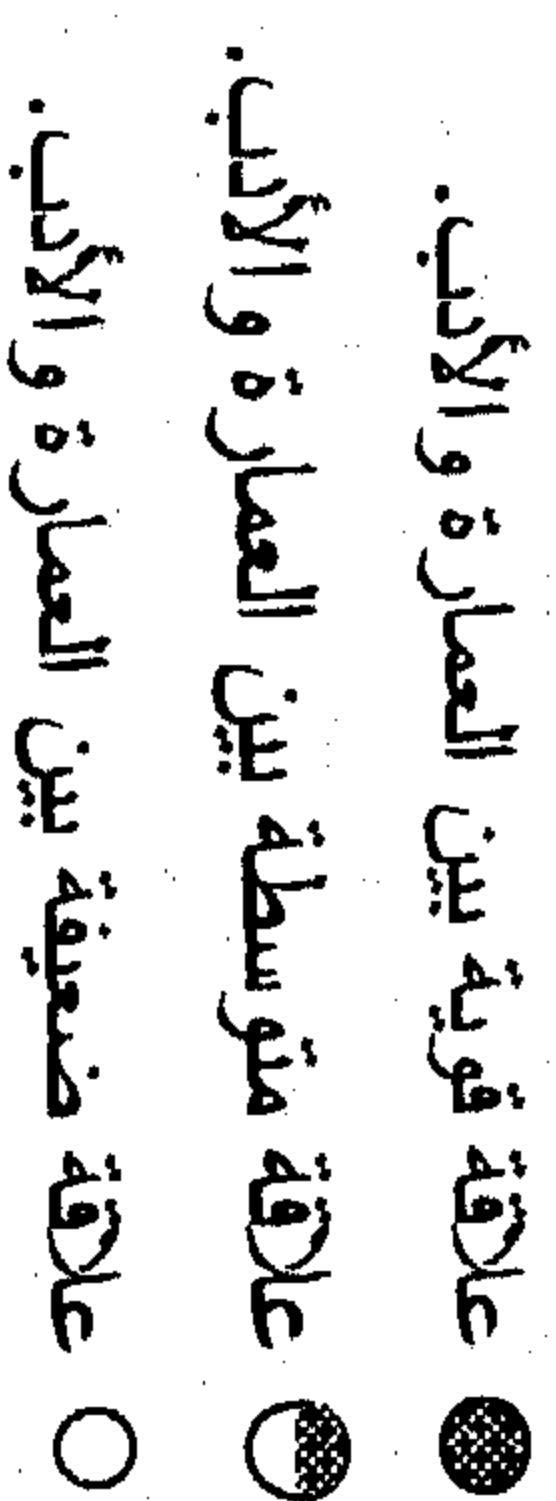 علاقة قوية بين العمارة و الأدب.
علاقة متوسطة بين العمارة و الأدب.
علاقة ضعيفة بين العمارة و الأدب.